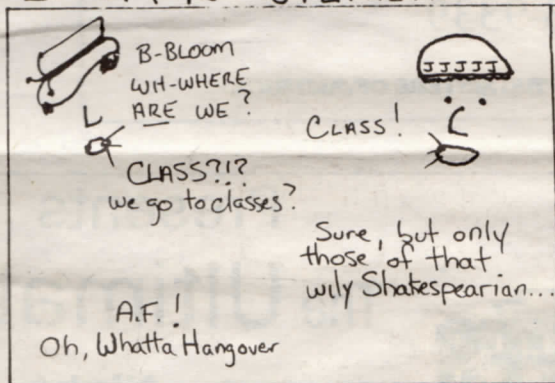 B-BLOOM
WH-WHERE
ARE WE?
JJJJJ
CLASS!
CLASS?!?
we go to classes?
Sure, but only
those of that
wily Shakespearian...
A.F.!
Oh, Whatta Hangover